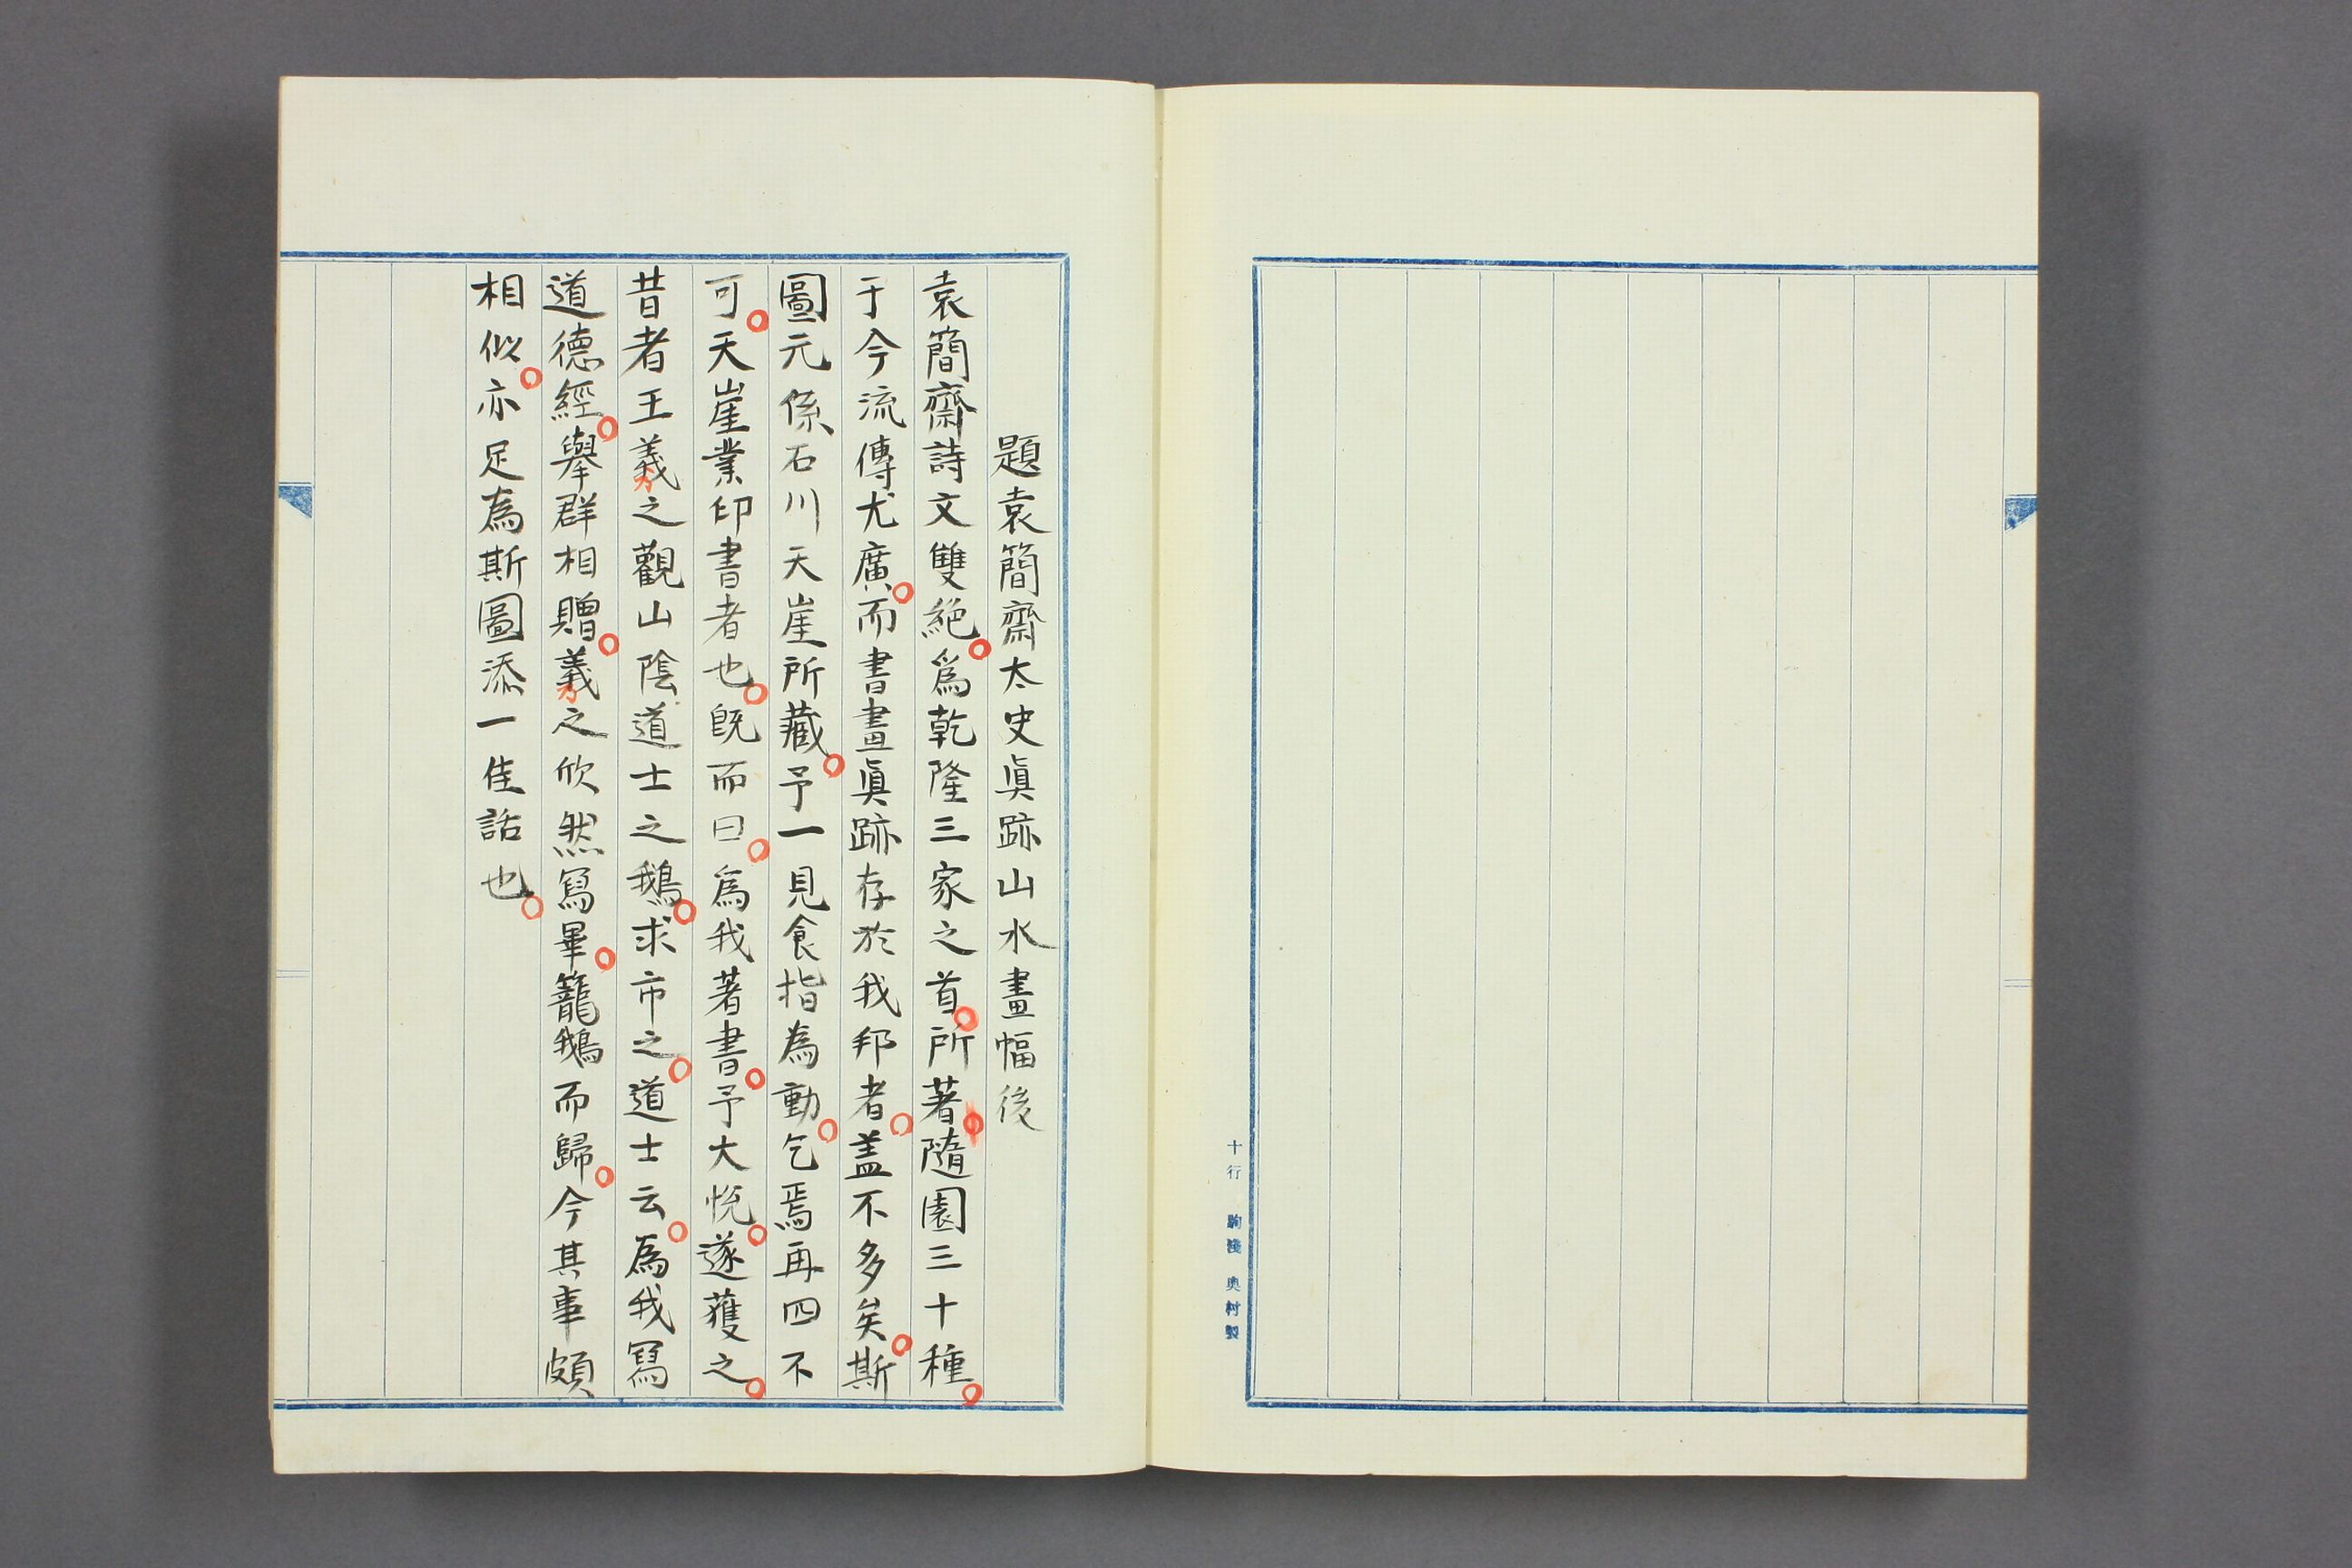 十行 駒淺 奥村製
題袁簡齋太史眞跡山水畫幅後
袁簡齋詩文雙絶。爲乾隆三家之首。所著隨園三十種。
于今流傳尤廣。而書畫眞跡存於我邦者。盖不多矣。斯
圖元係石川天崖所藏。予一見食指為動。乞焉再四不
可。天崖業印書者也。既而曰。爲我著書。予大悅。遂獲之。
昔者王義之觀山陰道士之鵝。求市之。道士云。為我寫
道德經。擧群相贈。義之欣然寫畢。籠鵝而歸。今其事頗
相似。亦足為斯圖添一佳話也。